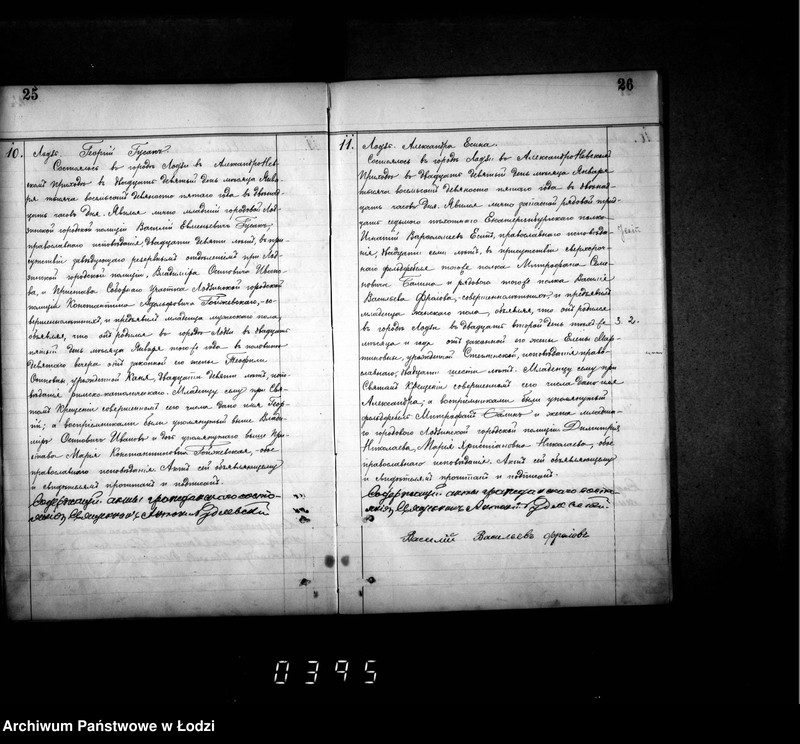 25
10. Лодзь. Георгій Гусакъ
Состоялось въ городѣ Лодзи въ Александро-Нев-
скомъ Приходѣ въ двадцать девятый день мѣсяца Янва-
ря тысяча восемьсотъ девяносто пятаго года въ двѣнад-
цать часовъ дня. Явился лично младшій городовой Лод-
зинской городской полиціи Василій Гусакъ,
православнаго исповѣданія двадцати девяти лѣтъ, въ при-
сутствіи завѣдующаго резервнымъ отдѣленіемъ при Лод-
зинской городской полиціи, Владиміра Осиповича Ивано-
ва, и Пристава Участка Лодзинской городской
полиціи Константина Гойжевскаго, со-
вершеннолѣтнихъ, и предъявилъ младенца мужескаго пола,
объявляя, что онъ родился въ городѣ Лодзи въ двадцать
пятый день мѣсяца Января того же года въ половинѣ
девятаго вечера отъ законной его жены Теофили
Осиповны, урожденной двадцати девяти лѣтъ, испо-
вѣданія римско-католическаго. Младенцу сему при Свя-
томъ Крещеніи совершенномъ сего числа дано имя Геор-
гій; а воспріемниками были упомянутый выше Влади-
міръ Осиповичъ Ивановъ и дочь упомянутаго выше При-
става Марія Константиновна Гойжевская, обое
православнаго исповѣданія. Актъ сей объявляющему
и свидѣтелямъ прочитанъ и подписанъ.
Содержащій акты гражданскаго состо-
янія, Священникъ Антоній Рудлевскій
26
11. Лодзь. Александра Есина.
Состоялось въ городѣ Лодзи въ Александро-Невскомъ
Приходѣ въ двадцать девятый день мѣсяца Января
тысяча восемьсотъ девяносто пятаго года въ двѣнад-
цать часовъ дня. Явился лично запасной рядовой трид-
цать седьмого пѣхотнаго Екатеринбургскаго полка
Игнатій Варѳоломеевъ Есинъ, православнаго исповѣда-
нія, двадцати семи лѣтъ, въ присутствіи сверхсроч-
наго фельдфебеля того же полка Митрофана Семе-
новича и рядового того же полка Василія
Васильева Фролова, совершеннолѣтнихъ, и предъявилъ
младенца женскаго пола, объявляя, что онъ родился
въ городѣ Лодзи въ двадцать второй день того же
мѣсяца и года отъ законной его жены Елены Мар-
тиновны, урожденной исповѣданія право-
славнаго, двадцати шести лѣтъ. Младенцу сему при
Святомъ Крещеніи совершенномъ сего числа дано имя
Александра; а воспріемниками были упомянутый
фельдфебель Митрофанъ и жена младша-
го городового Лодзинской городской полиціи Димитрія
Николаева, Марія Николаева, обое
православнаго исповѣданія. Актъ сей объявляющему
и свидѣтелямъ прочитанъ и подписанъ.
Содержащій акты гражданскаго состо-
янія, Священникъ Антоній Рудлевскій.
Василій Васильевъ Фроловъ
0395
Archiwum Państwowe w Łodzi